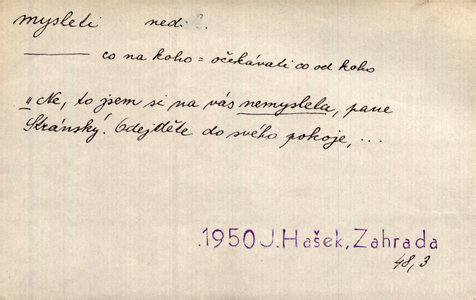 mysleti ned.
co na koho = očekávati co od koho
„Ne, to jsem si na vás nemyslela, pane
Stránský! Odejděte do svého pokoje, ...
.1950 J. Hašek, Zahrada
48, 3